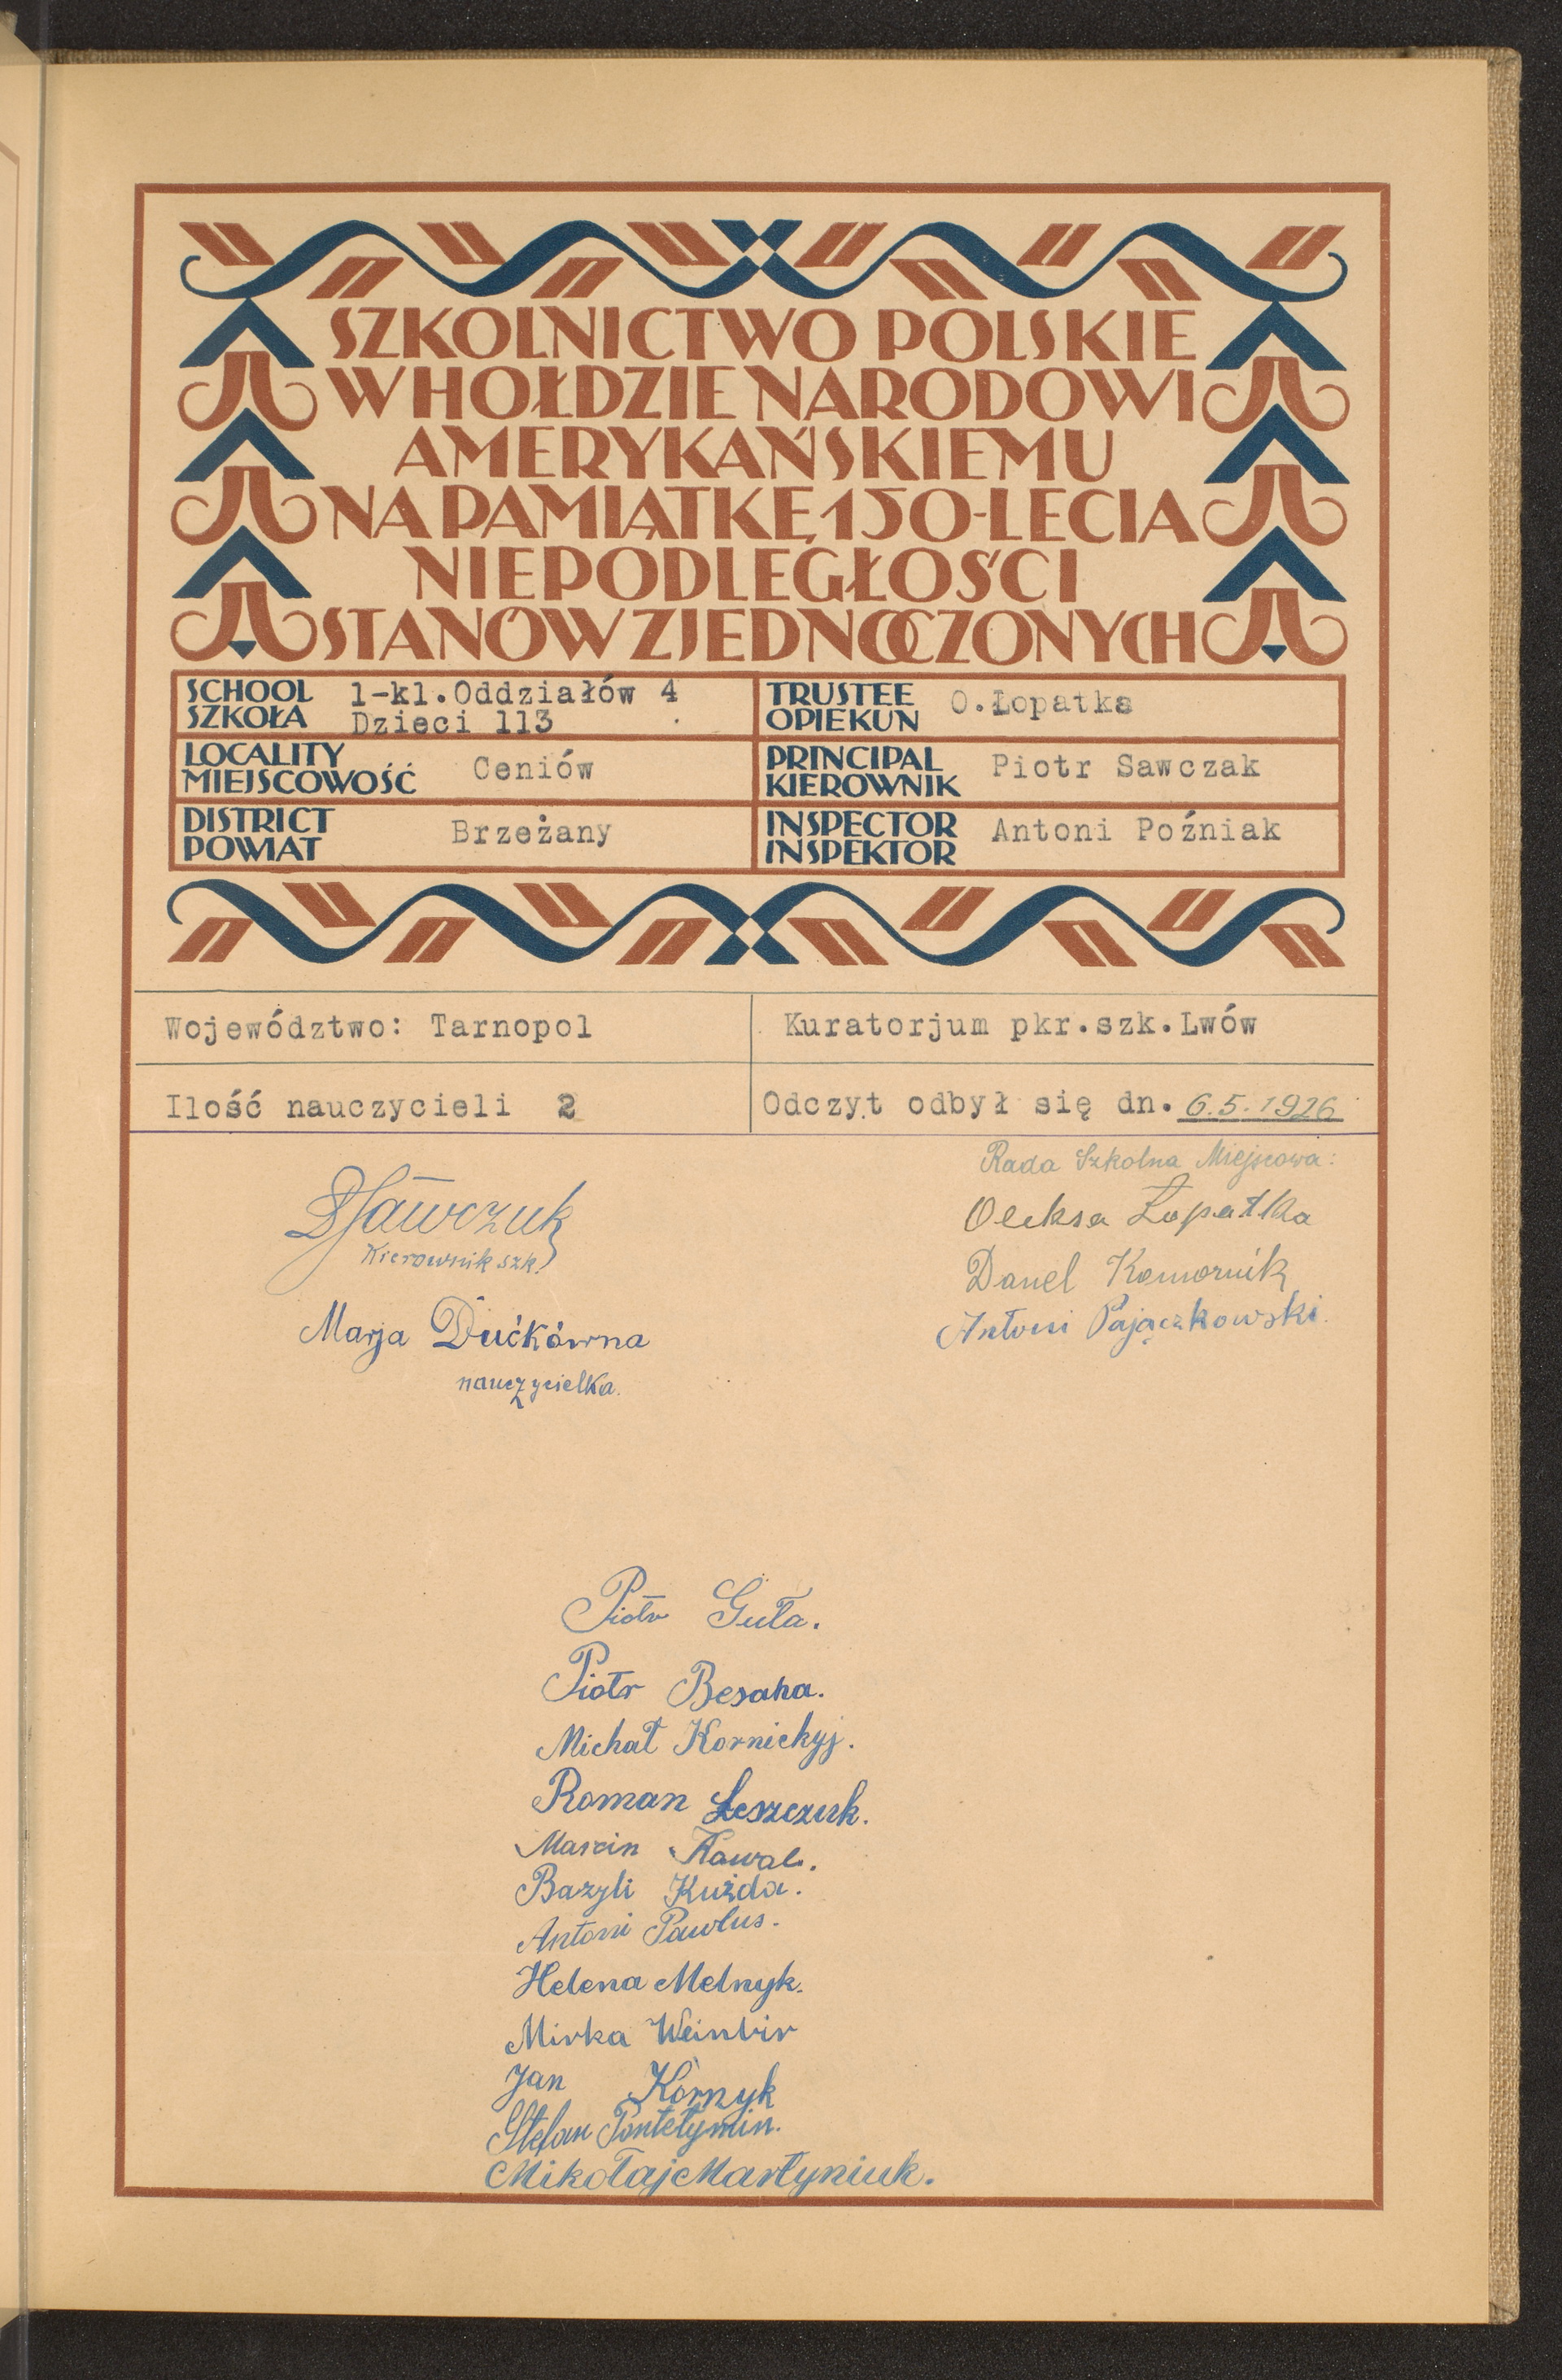 SZKOLNICTWO POLSKIE
W HOŁDZIE NARODOWI
AMERYKAŃSKIEMU
NA PAMIĄTKĘ 150-LECIA
NIEPODLEGŁOŚCI
STANÓW ZJEDNOCZONYCH
SCHOOL 1-kl.Oddziałów 4
SZKOŁA Dzieci 113
TRUSTEE
OPIEKUN O.Łopatka
LOCALITY
MIEJSCOWOŚĆ Ceniów
PRINCIPAL
KIEROWNIK Piotr Sawczak
DISTRICT
POWIAT Brzeżany
INSPECTOR
INSPEKTOR Antoni Poźniak
Województwo: Tarnopol
Kuratorjum pkr.szk.Lwów
Ilość nauczycieli 2
Odczyt odbył się dn. 6.5.1926
PSawczuk
Kierownik szk.
Marja Dućkówna
nauczycielka.
Rada Szkolna Miejscowa:
Oleksa Łopatka
Danel Komornik
Antoni Pajączkowski.
Piotr Guła.
Piotr Besaha.
Michał Kornickyj.
Roman Leszczuk.
Marcin Kawal.
Bazyli Kużda.
Antoni Pawlus.
Helena Melnyk.
Mirka Weinbir
Jan Kornyk
Stefan Pantełymin.
Mikołaj Martyniuk.